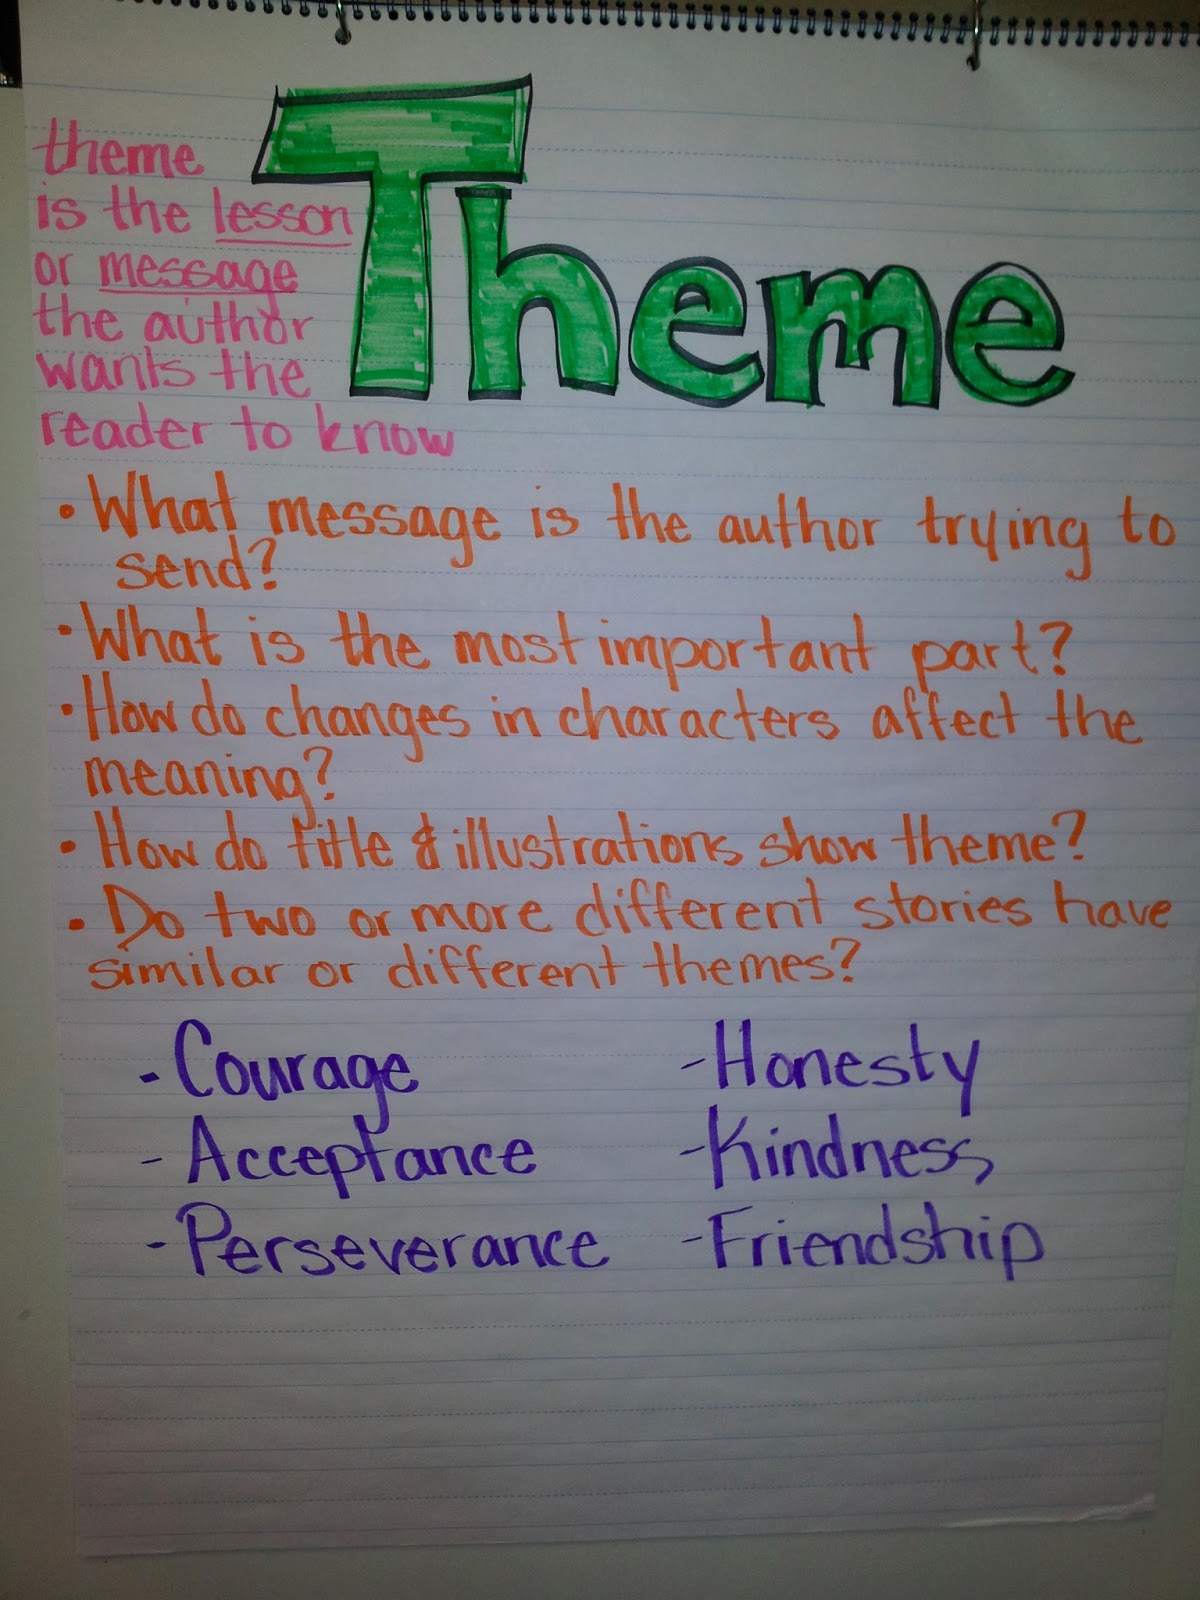 Theme
theme
is the lesson
or message
the author
wants the
reader to know
• What message is the author trying to
send?
• What is the most important part?
• How do changes in characters affect the
meaning?
• How do title & illustrations show theme?
• Do two or more different stories have
similar or different themes?
- Courage - Honesty
- Acceptance - Kindness
- Perseverance - Friendship